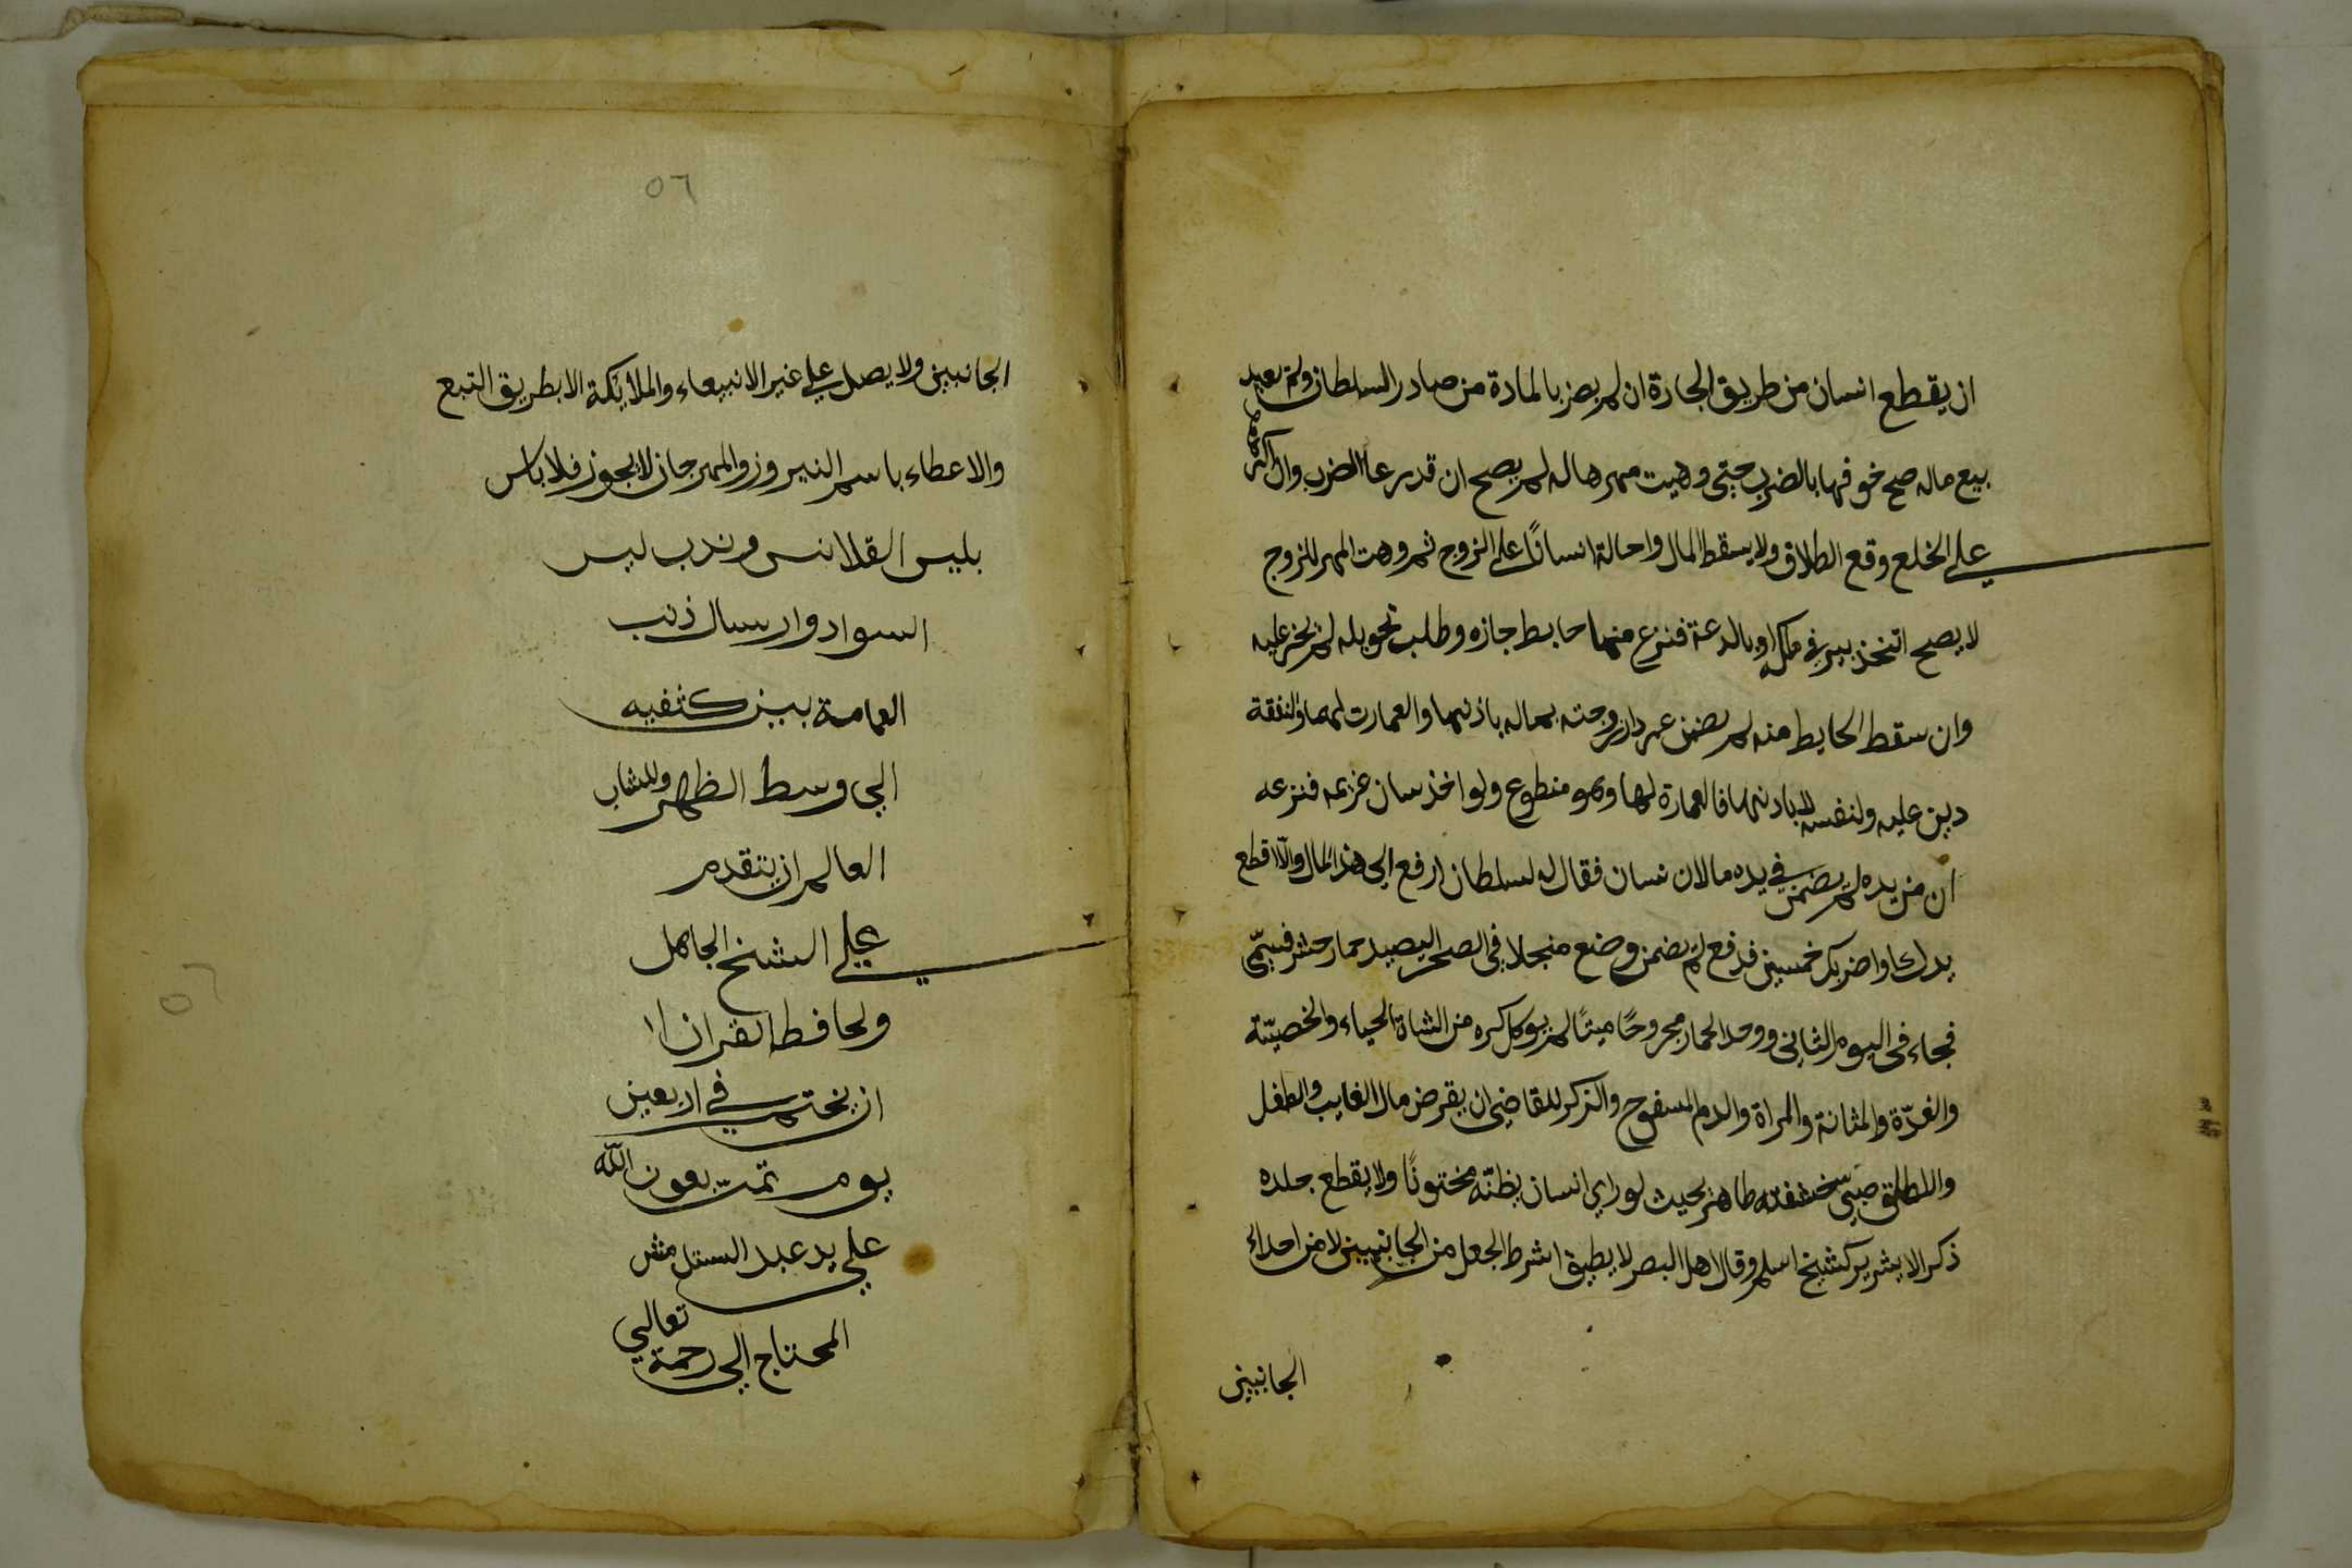 ان يقطع انسان من طريق الجادة ان لم يضر بالمادة من صادر السلطان ولم يعين
بيع ماله صح خوفها بالضرب حتى وهبت مهرها له لم يصح ان قدر على الضرب وان اكره
على الخلع وقع الطلاق ولا يسقط المال واحالة انسانًا على الزوج ثم وهبت المهر للزوج
لا يصح اتخذ بير في ملكه او بالدعة فنزع منها حايط جازه وطلب تحويله لم يجبر عليه
وان سقط الحايط منه لم يضمن عمر دار زوجته بماله باذنها والعمارت لها والنفقة
دين عليه ولنفسه بلا باذنها فالعمارة لها وهو متطوع ولو اخذ سان غريمه فنزعه
ان من يده لم يضمن في يده مال ان نسان فقال له لسلطان ارفع الى هذا المال والا اقطع
يدك او اضربك خمسين فدفع لم يضمن وضع منجلا في الصحر اليصيد حمار حش فسمى
فجاء فى اليوم الثانى ووجد الحمار مجروحًا ميتًا لم يوكل كره من الشاة الحياء والخصيّة
والغدّة والمثانة والمراة والدم المسفوح والذكر للقاضى ان يقرض مال الغايب والطفل
واللطلق صبى حشفته ظاهر بحيث لو راى انسان يظنّه مختونًا ولا يقطع جلده
ذكر الا بشر يركشيخ اسلم وقال اهل البصر لا يطيق اشرط الجعل من الجانبين لا من احداء
الجانبين
٥٦
الجانبين ولا يصل على غير الانبيعاء والملايكة الا بطريق التبع
والاعطاء باسم النيروز والمهرجان لا يجوز فلا باس
بلبس القلانس وندب لبس
السواد وارسال ذنب
العمامة بين كتفيه
الى وسط الظهر وللشاب
العالم ان يتقدم
على الشيخ الجاهل
ولحافظ القران ا
ان يختم في اربعين
يوم تمت بعون الله
على يد عبد
المحتاج الى رحمة تعالى
٥٦